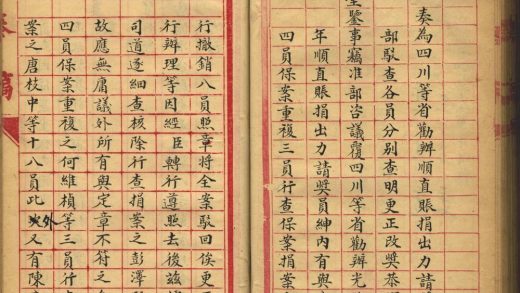 奏為四川等省勸辦順直賑捐出力請
部駁查各員分別查明更正改獎恭
聖鑒事竊准部咨議覆四川等省勸辦光
年順直賑捐出力請獎員紳內有與
四員保案重複三員行查保案捐案
行撤銷八員照章將全案駁回俟更
行辦理等因經臣轉行遵照去後茲
司道逐細查核除行查捐案之彭澤
故應無庸議外所有與定章不符之
四員保案重複之何維楨等三員行
案之唐枝中等十八員此外又有陳
稿